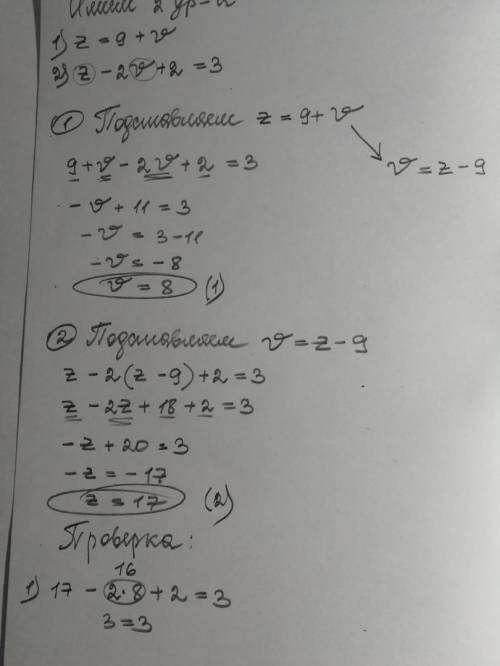 Имеем 2 ур-я
1) z = 9 + v
2) z - 2v + 2 = 3
① Подставляем z = 9 + v
v = z - 9
9 + v - 2v + 2 = 3
- v + 11 = 3
- v = 3 - 11
- v = - 8
v = 8 (1)
② Подставляем v = z - 9
z - 2(z - 9) + 2 = 3
z - 2z + 18 + 2 = 3
- z + 20 = 3
- z = - 17
z = 17 (2)
Проверка:
16
1) 17 - 2·8 + 2 = 3
3 = 3